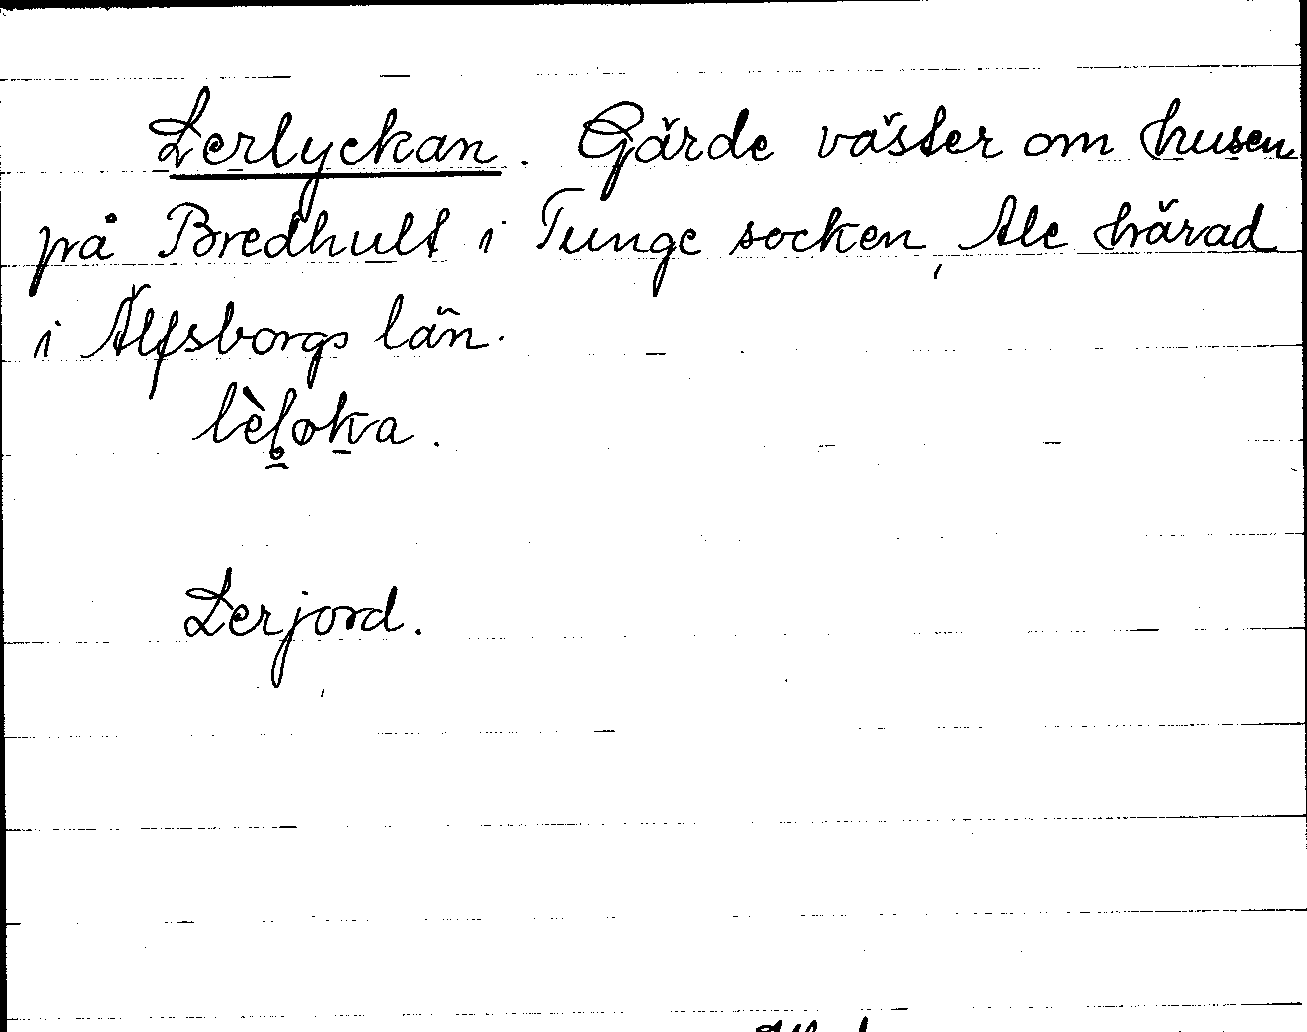 Lerlyckan. Gärde väster om husen
på Bredhult i Tunge socken, Ale härad
i Älfsborgs län.
lèl̥øka.
Lerjord.